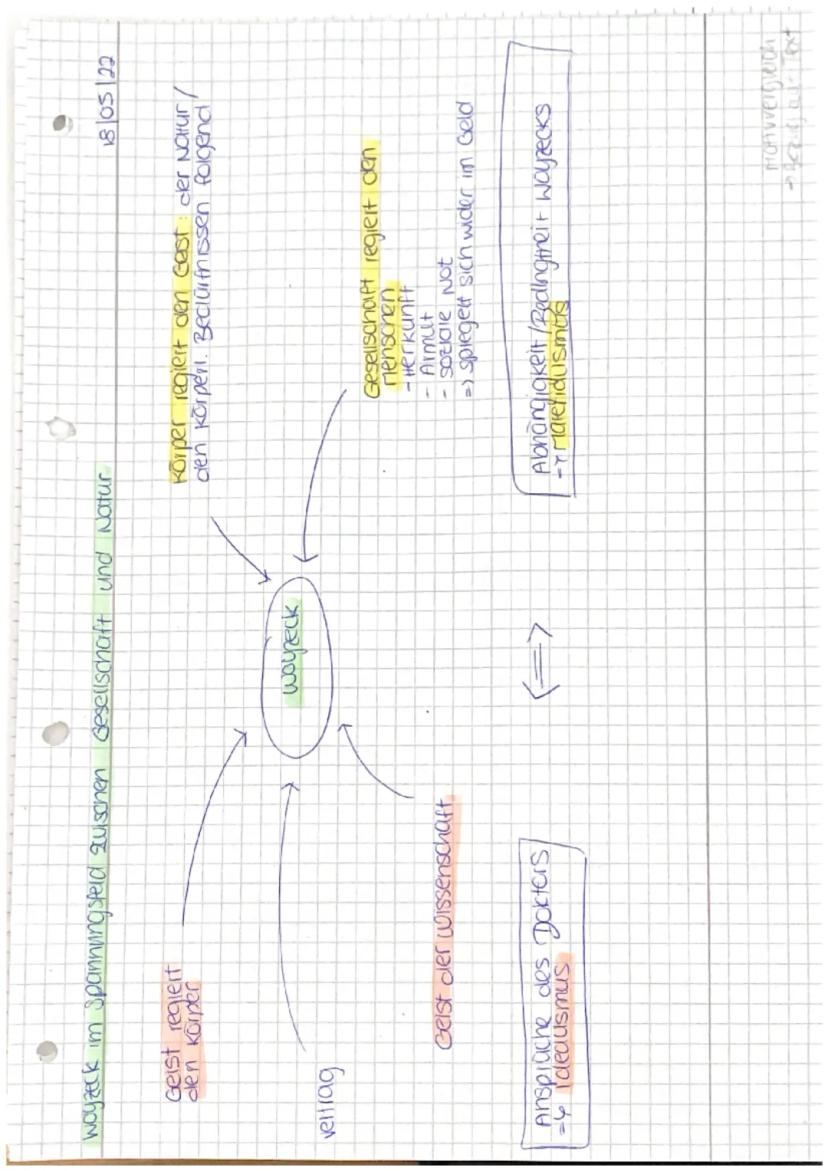 Woyzeck im Spannungsfeld zwischen Gesellschaft und Natur
18/05/22
Geist regiert
den Körper
Vertrag
Geist der Wissenschaft
Woyzeck
Körper regiert den Geist: der Natur/
den körperl. Bedürfnissen folgend
Gesellschaft regiert den
Menschen
- Herkunft
- Armut
- soziale Not
=> spiegelt sich wider im Geld
Ansprüche des Doktors
=> Idealismus
<=>
Abhängigkeit/Bedingtheit Woyzecks
=> Materialismus